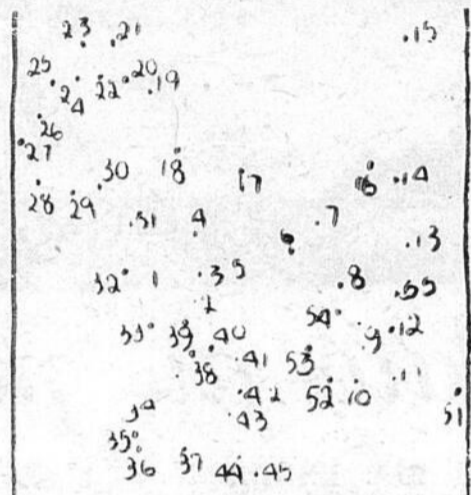 23 21 15
25 20
24 22 19
26
27
30 18 17 16 14
28 29
31 4 7
6 13
32 1 3 5 8
55
2
54
33 39 40 9 12
41 53
38 11
42 52 10
34 43 51
35
36 37 44 45